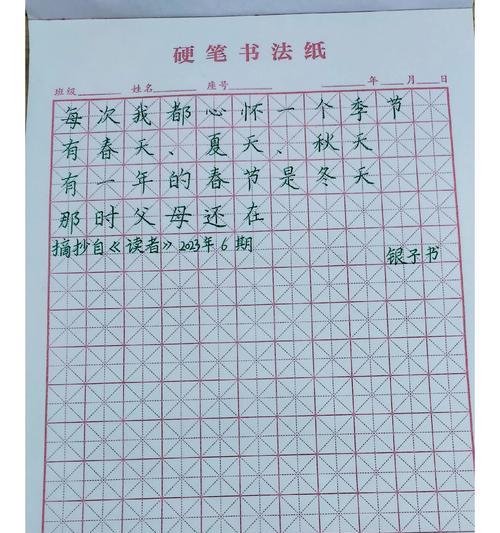 硬笔书法纸
班级 姓名 座号 年 月 日
每次我都心怀一个季节
有春天、夏天、秋天
有一年的春节是冬天
那时父母还在
摘抄自《读者》2023年6期
银子书